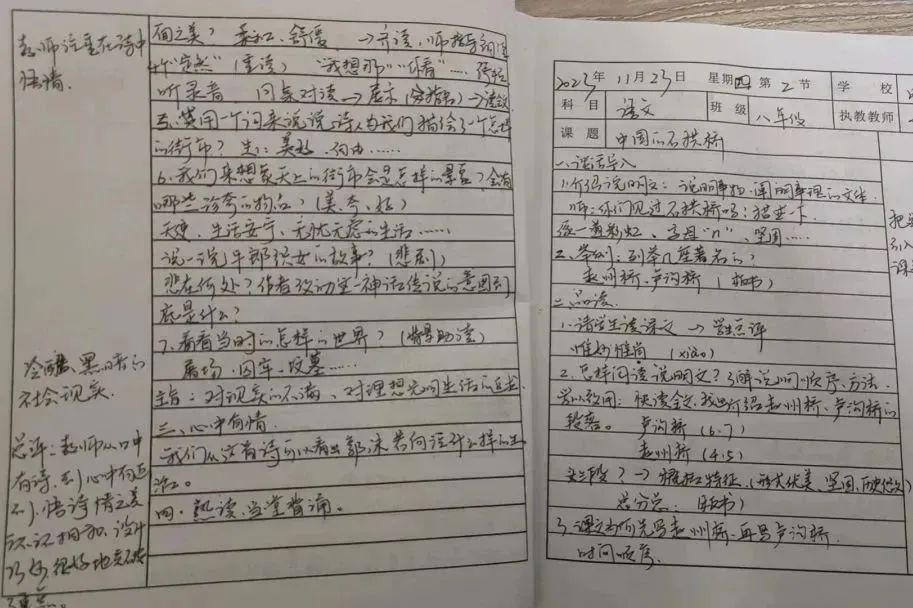 赵师注重在诗中
悟情。
冷酷、黑暗的
社会现实.
总评：赵师从口中
有诗，到心中有
悟诗情之美
很好地
面之美？ 柔和、舒缓 →齐读，师指导
"定然"（重读） "我想那" "你看"……
听录音 同桌对读→展示 →读
五、能用一个词来说说诗人为我们描绘了一个怎样
的街市？ 生：美好、自由……
6、我们来想象天上的街市会是怎样的景象？会有
哪些珍奇的物品？（美、奇、）
天使、生活安宁、无忧无虑的生活……
说一说牛郎织女的故事？（悲剧）
悲在何处？作者改动这一神话传说的意图到
底是什么？
7、看看当时的怎样的世界？（背景助读）
屠场、囚车、坟墓……
主旨：对现实的不满、对理想光明生活的追求
三、心中有情
我们从这首诗可以看出郭沫若向往什么样的生
活。
四、熟读、当堂背诵。
2023年 11月23日 星期四 第2节 学 校
科 目 语文 班 级 八年级 执教教师
课 题 中国的石拱桥
一、谈话导入
1.介绍说明文：说明事物、阐明事理的文体
师：你们见过石拱桥吗？描述一下.
像一道彩虹、字母"n"、坚固……
2、举例：列举几座著名的？
赵州桥、卢沟桥（板书）
二、品读
1、请学生读课文 → 学生点评
惟妙惟肖（xiào）
2、怎样阅读说明文？了解说明顺序、方法.
学以致用：快读全文，找出介绍赵州桥、卢沟桥的
段落。 卢沟桥（6.7）
赵州桥（4.5）
→ 概括特征（形式优美、坚固、历史悠久）
总分总：（板书）
3、课文为何先写赵州桥，再写卢沟桥.
时间顺序.